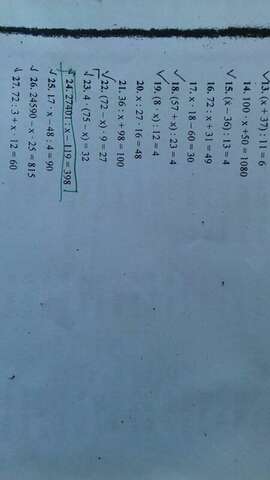 13. (x + 37) : 11 = 6
14. 100 · x + 50 = 1080
15. (x − 36) : 13 = 4
16. 72 : x + 31 = 49
17. x · 18 − 60 = 30
18. (57 + x) : 23 = 4
19. (8 · x) : 12 = 4
20. x : 27 · 16 = 48
21. 36 : x + 98 = 100
22. (72 − x) · 9 = 27
23. 4 · (75 − x) = 32
24. 27401 : x − 119 = 398
25. 17 · x − 48 : 4 = 90
26. 24590 − x · 25 = 815
27. 72 : 3 + x · 12 = 60